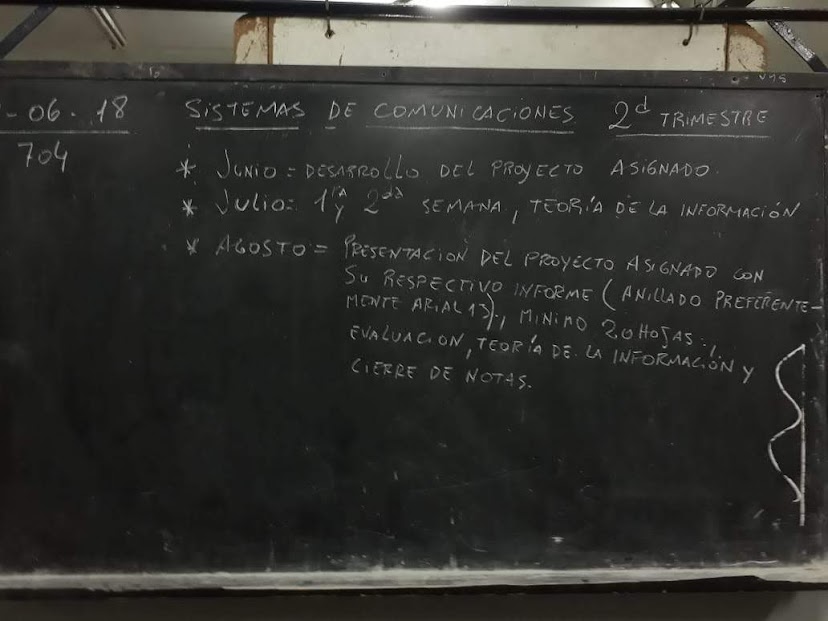 -06-18 SISTEMAS DE COMUNICACIONES 2d TRIMESTRE
704
* JUNIO = DESARROLLO DEL PROYECTO ASIGNADO.
* JULIO = 1RA Y 2da SEMANA, TEORÍA DE LA INFORMACIÓN
* AGOSTO = PRESENTACION DEL PROYECTO ASIGNADO CON
SU RESPECTIVO INFORME (ANILLADO PREFERENTE-
MENTE ARIAL 13), MINIMO 20 HOJAS.,
EVALUACION, TEORÍA DE LA INFORMACIÓN Y
CIERRE DE NOTAS.